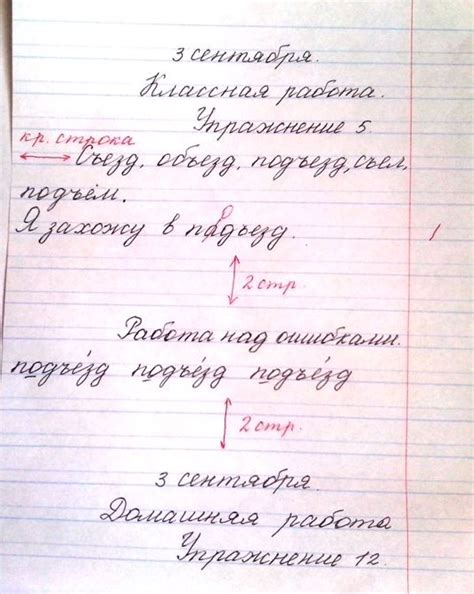 3 сентября.
Классная работа.
Упражнение 5
кр. строка
Съезд, объезд, подъезд, съел,
подъём.
Я захожу в падъезд.
о
1
2 стр.
Работа над ошибками.
подъезд подъезд подъезд
2 стр.
3 сентября.
Домашняя работа
Упражнение 12.